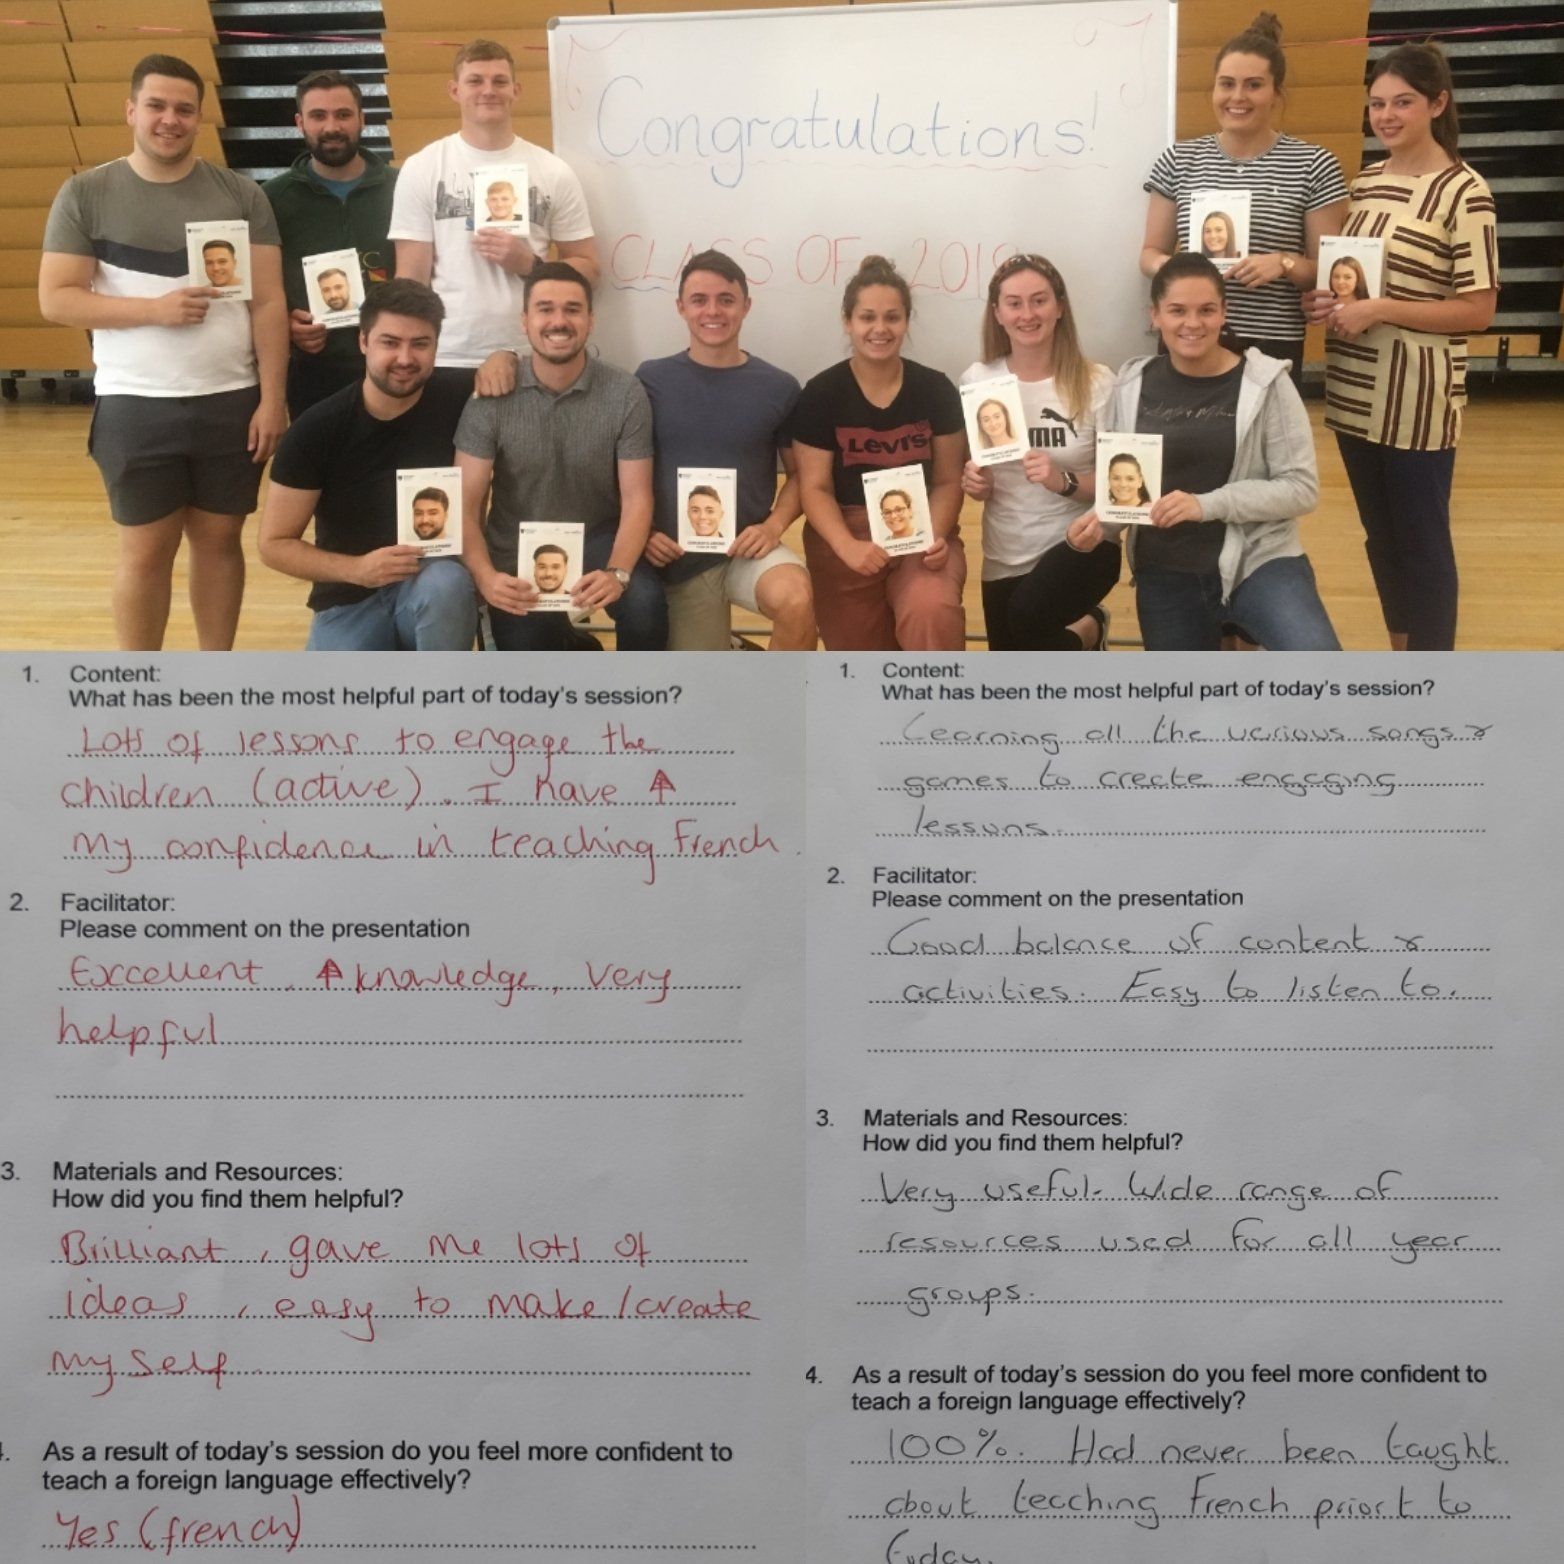 Congratulations!
CLASS OF 2019
LEVI'S
MA
1. Content:
What has been the most helpful part of today's session?
Lots of lessons to engage the
children (active). I have ↑
my confidence in teaching French
2. Facilitator:
Please comment on the presentation
Excellent, ↑ knowledge, very
helpful
3. Materials and Resources:
How did you find them helpful?
Brilliant, gave me lots of
ideas, easy to make/create
myself.
As a result of today's session do you feel more confident to
teach a foreign language effectively?
Yes (french)
1. Content:
What has been the most helpful part of today's session?
Learning all the various songs &
games to create engaging
lessons.
2. Facilitator:
Please comment on the presentation
Good balance of content &
activities. Easy to listen to.
3. Materials and Resources:
How did you find them helpful?
Very useful. Wide range of
resources used for all year
groups.
4. As a result of today's session do you feel more confident to
teach a foreign language effectively?
100%. Had never been taught
about teaching French priort to
today.